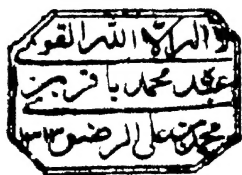 لا اله الا الله القوى
عبده محمد باقر بن
محمد على الرضوى